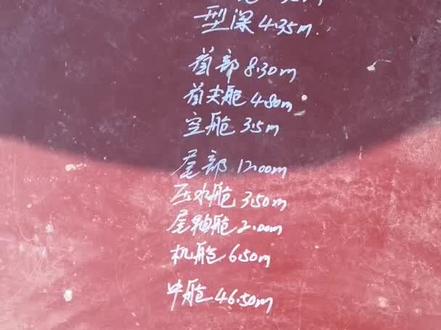 型深 4.35m
首部 8.30m
首尖舱 4.80m
空舱 3.5m
尾部 12.00m
压水舱 3.50m
尾轴舱 2.00m
机舱 6.50m
中舱 46.50m